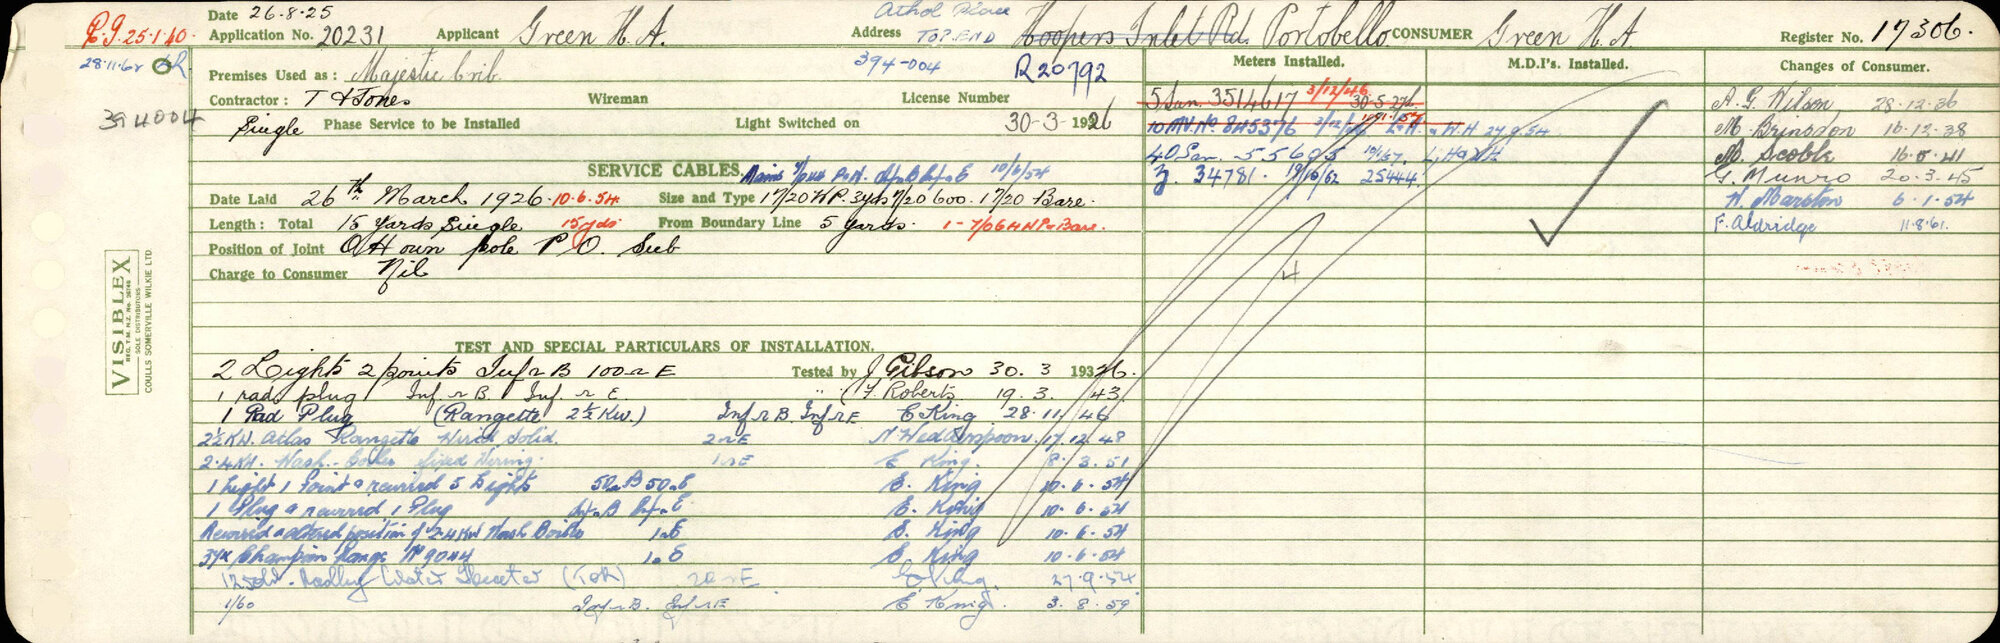 P.I. 25.1.40.
28.11.62
394004
Date 26.8.25
Application No. 20231 Applicant Green H. A. Address Athol Place TOP END Hoopers Inlet Rd. Portobello CONSUMER Green H. A. Register No. 17306.
394-004 R20792
Premises Used as : Majestic Crib
Contractor : T H Jones Wireman License Number
Single Phase Service to be Installed Light Switched on 30-3-1926
SERVICE CABLES. Mains 10/6/54
Date Laid 26th March 1926. 10.6.54 Size and Type 17/20 H.P. 3yds 7/20 600. 17/20 Bare.
Length: Total 15 Yards Single 15yds From Boundary Line 5 yards. 1-7/064 H.P. Bare.
Position of Joint O/H own pole P.O. Sub
Charge to Consumer Nil
TEST AND SPECIAL PARTICULARS OF INSTALLATION.
2 Lights 2 points Inf ~ B 100 ~ E Tested by J Gibson 30. 3 1926.
1 rad plug Inf. ~ B. Inf. ~ E. " (F. Roberts 19. 3. 43.
1 Rad Plug (Rangette 2½ KW.) Inf ~ B. Inf ~ E E King 28. 11. 46
2½ KW. Atlas Rangette Wired Solid. 2 ~ E N Wedderspoon. 17.12.48
2.4 KW. Wash-Boiler fixed Wiring. 1 ~ E E King. 8. 3. 51
1 Light 1 Point & rewired 5 Lights 50 ~ B 50 ~ E E. King 10. 6. 54
1 Plug & rewired 1 Plug Inf ~ B Inf ~ E E. King 10. 6. 54
Rewired & altered position of 2.4 KW Wash Boiler 1 ~ E E. King 10. 6. 54
Champion Range No 9044 1 ~ E E. King 10. 6. 54
Water Heater 20 ~ E E King. 27.9.54
1/60 Inf ~ B. Inf ~ E E King. 3. 8. 59
Meters Installed.
5 San. 3514617 3/12/46 30-5-27
10 MV. No. 845376 3/12/46 & W.H 27.9.54
40 San. 55605
Z. 34781. 19/6/62 25444
4
M.D.I's. Installed.
Changes of Consumer.
A. G. Wilson 28-12-36
M. Brinsdon 16-12-38
M. Scoble 16.5.41
G. Munro 20.3.45
W. Marston 6.1.54
F. Aldridge 11.8.61.
VISIBLEX
REG. T.M. N.Z. No. 26746
SOLE DISTRIBUTORS
COULLS SOMERVILLE WILKIE LTD